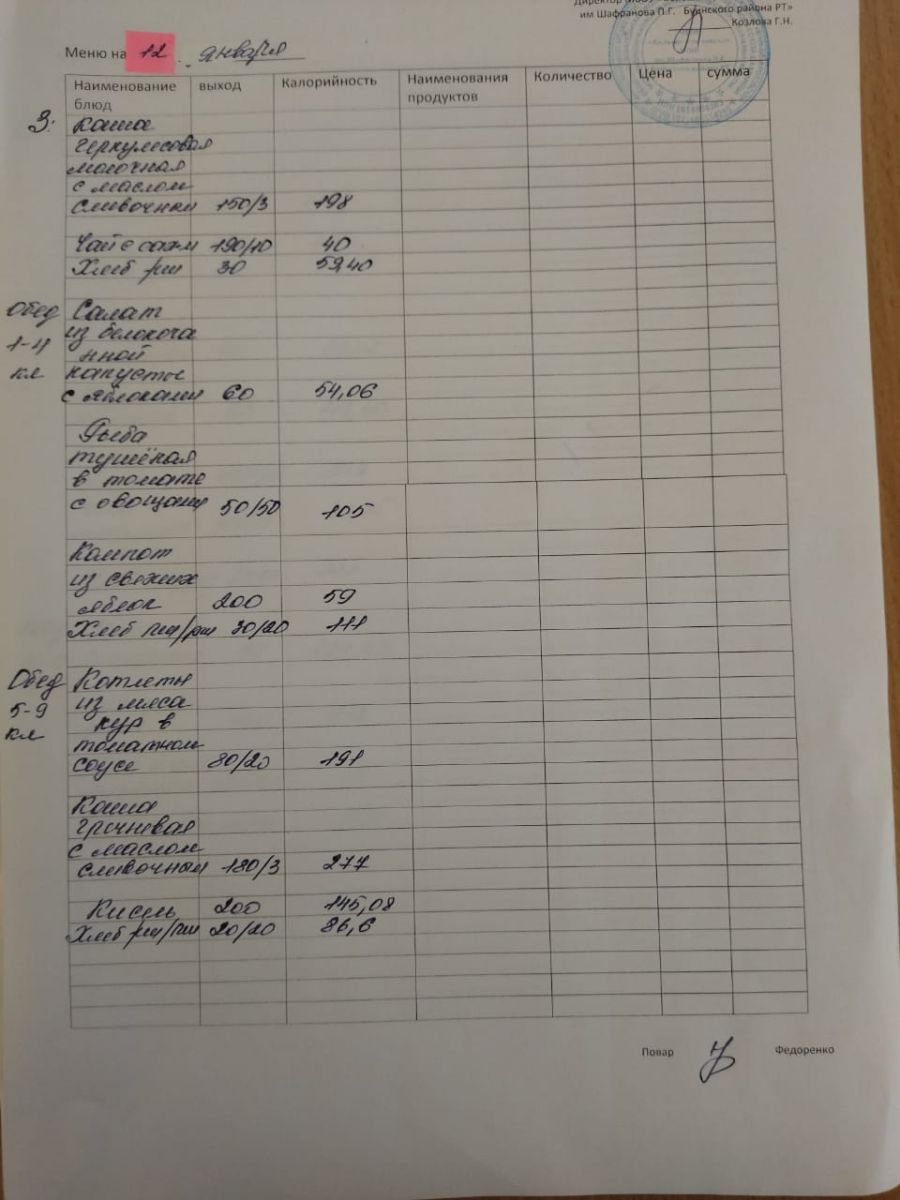 им Шафранова П.Г. Буинского района РТ»
Козлова Г.Н.
Меню на 12 января
Наименование блюд выход Калорийность Наименования продуктов Количество Цена сумма
З: Каша
геркулесовая
молочная
с маслом
сливочным 150/3 198
Чай с сахм 190/10 40
Хлеб рж 30 59,40
Обед Салат
1-4 из белокоча
нной
кл капусты
с яблоками 60 54,06
Рыба
тушёная
в томате
с овощами 50/50 105
Компот
из свежих
яблок 200 59
Хлеб пш/рж 30/20 111
Обед Котлеты
5-9 из мяса
кл кур в
томатном
соусе 80/20 191
Каша
гречневая
с маслом
сливочным 180/3 277
Кисель 200 145,08
Хлеб рж/пш 20/20 86,6
Повар Федоренко